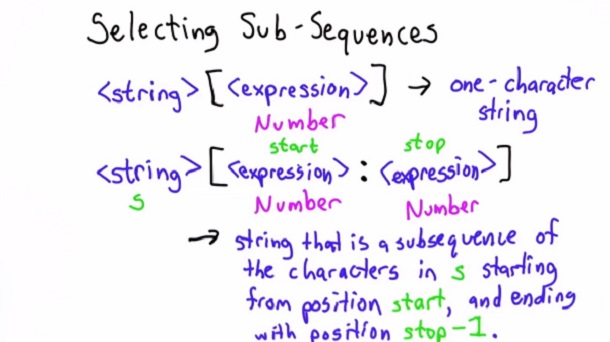 Selecting Sub-Sequences
<string>[<expression>] → one-character
string
Number
start stop
<string>[<expression> : <expression>]
s Number Number
→ string that is a subsequence of
the characters in s starting
from position start, and ending
with position stop-1.